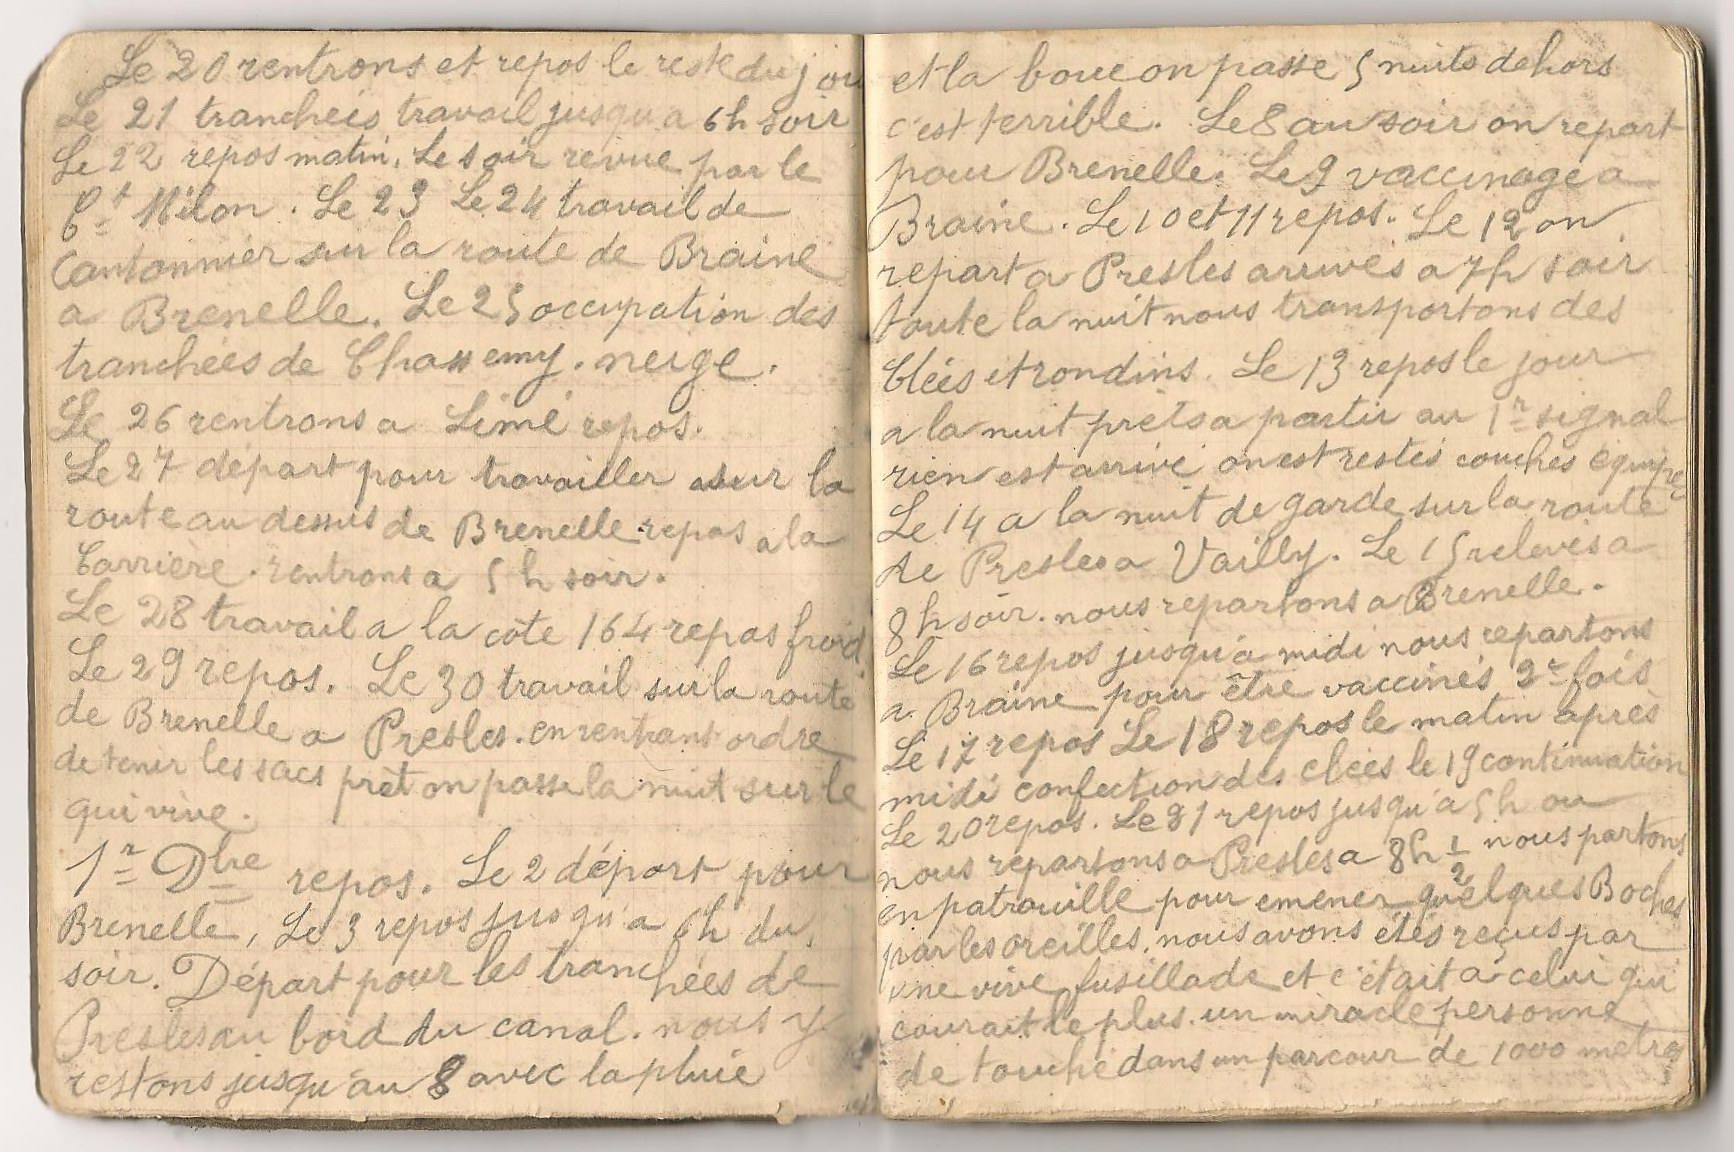 Le 20 rentrons et repos le reste du jou
Le 21 tranchées travail jusqu'a 6h soir
Le 22 repos matin. Le soir revue par le
Ct Milon. Le 23 Le 24 travail de
Cantonnier sur la route de Braine
a Brenelle. Le 25 occupation des
tranchées de Chassemy. neige.
Le 26 rentrons a Limé repos.
Le 27 départ pour travailler sur la
route au dessus de Brenelle repas a la
Carrière. rentrons a 5h soir.
Le 28 travail a la côte 164 repas froid
Le 29 repos. Le 30 travail sur la route
de Brenelle a Presles. en rentrant ordre
de tenir les sacs prêt on passe la nuit sur le
qui vive.
1r Dbre repos. Le 2 départ pour
Brenelle, Le 3 repos jusqu'a 6h du
soir. Départ pour les tranchées de
Presles au bord du canal. nous y
restons jusqu'au 8 avec la pluie
et la boue on passe 5 nuits dehors
c'est terrible. Le 8 au soir on repart
pour Brenelle. Le 9 vaccinage a
Braine. Le 10 et 11 repos. Le 12 on
repart a Presles arrivés a 7h soir
toute la nuit nous transportons des
clées et rondins. Le 13 repos le jour
a la nuit prêts a partir au 1r signal
rien est arrivé on est restés couchés équipés
Le 14 a la nuit de garde sur la route
de Presles a Vailly. Le 15 relevés a
8h soir. nous repartons a Brenelle.
Le 16 repos jusqu'à midi nous repartons
a Braine pour être vaccinés 2e fois
Le 17 repos Le 18 repos le matin après
midi confection des clées le 19 continuation
Le 20 repos. Le 21 repos jusqu'à 5h ou
nous repartons a Presles a 8h 1/2 nous partons
en patrouille pour emener quelques Boches
par les oreilles. nous avons étés reçus par
une vive fusillade et c'était a celui qui
courait le plus. un miracle personne
de touché dans un parcour de 1000 mètres